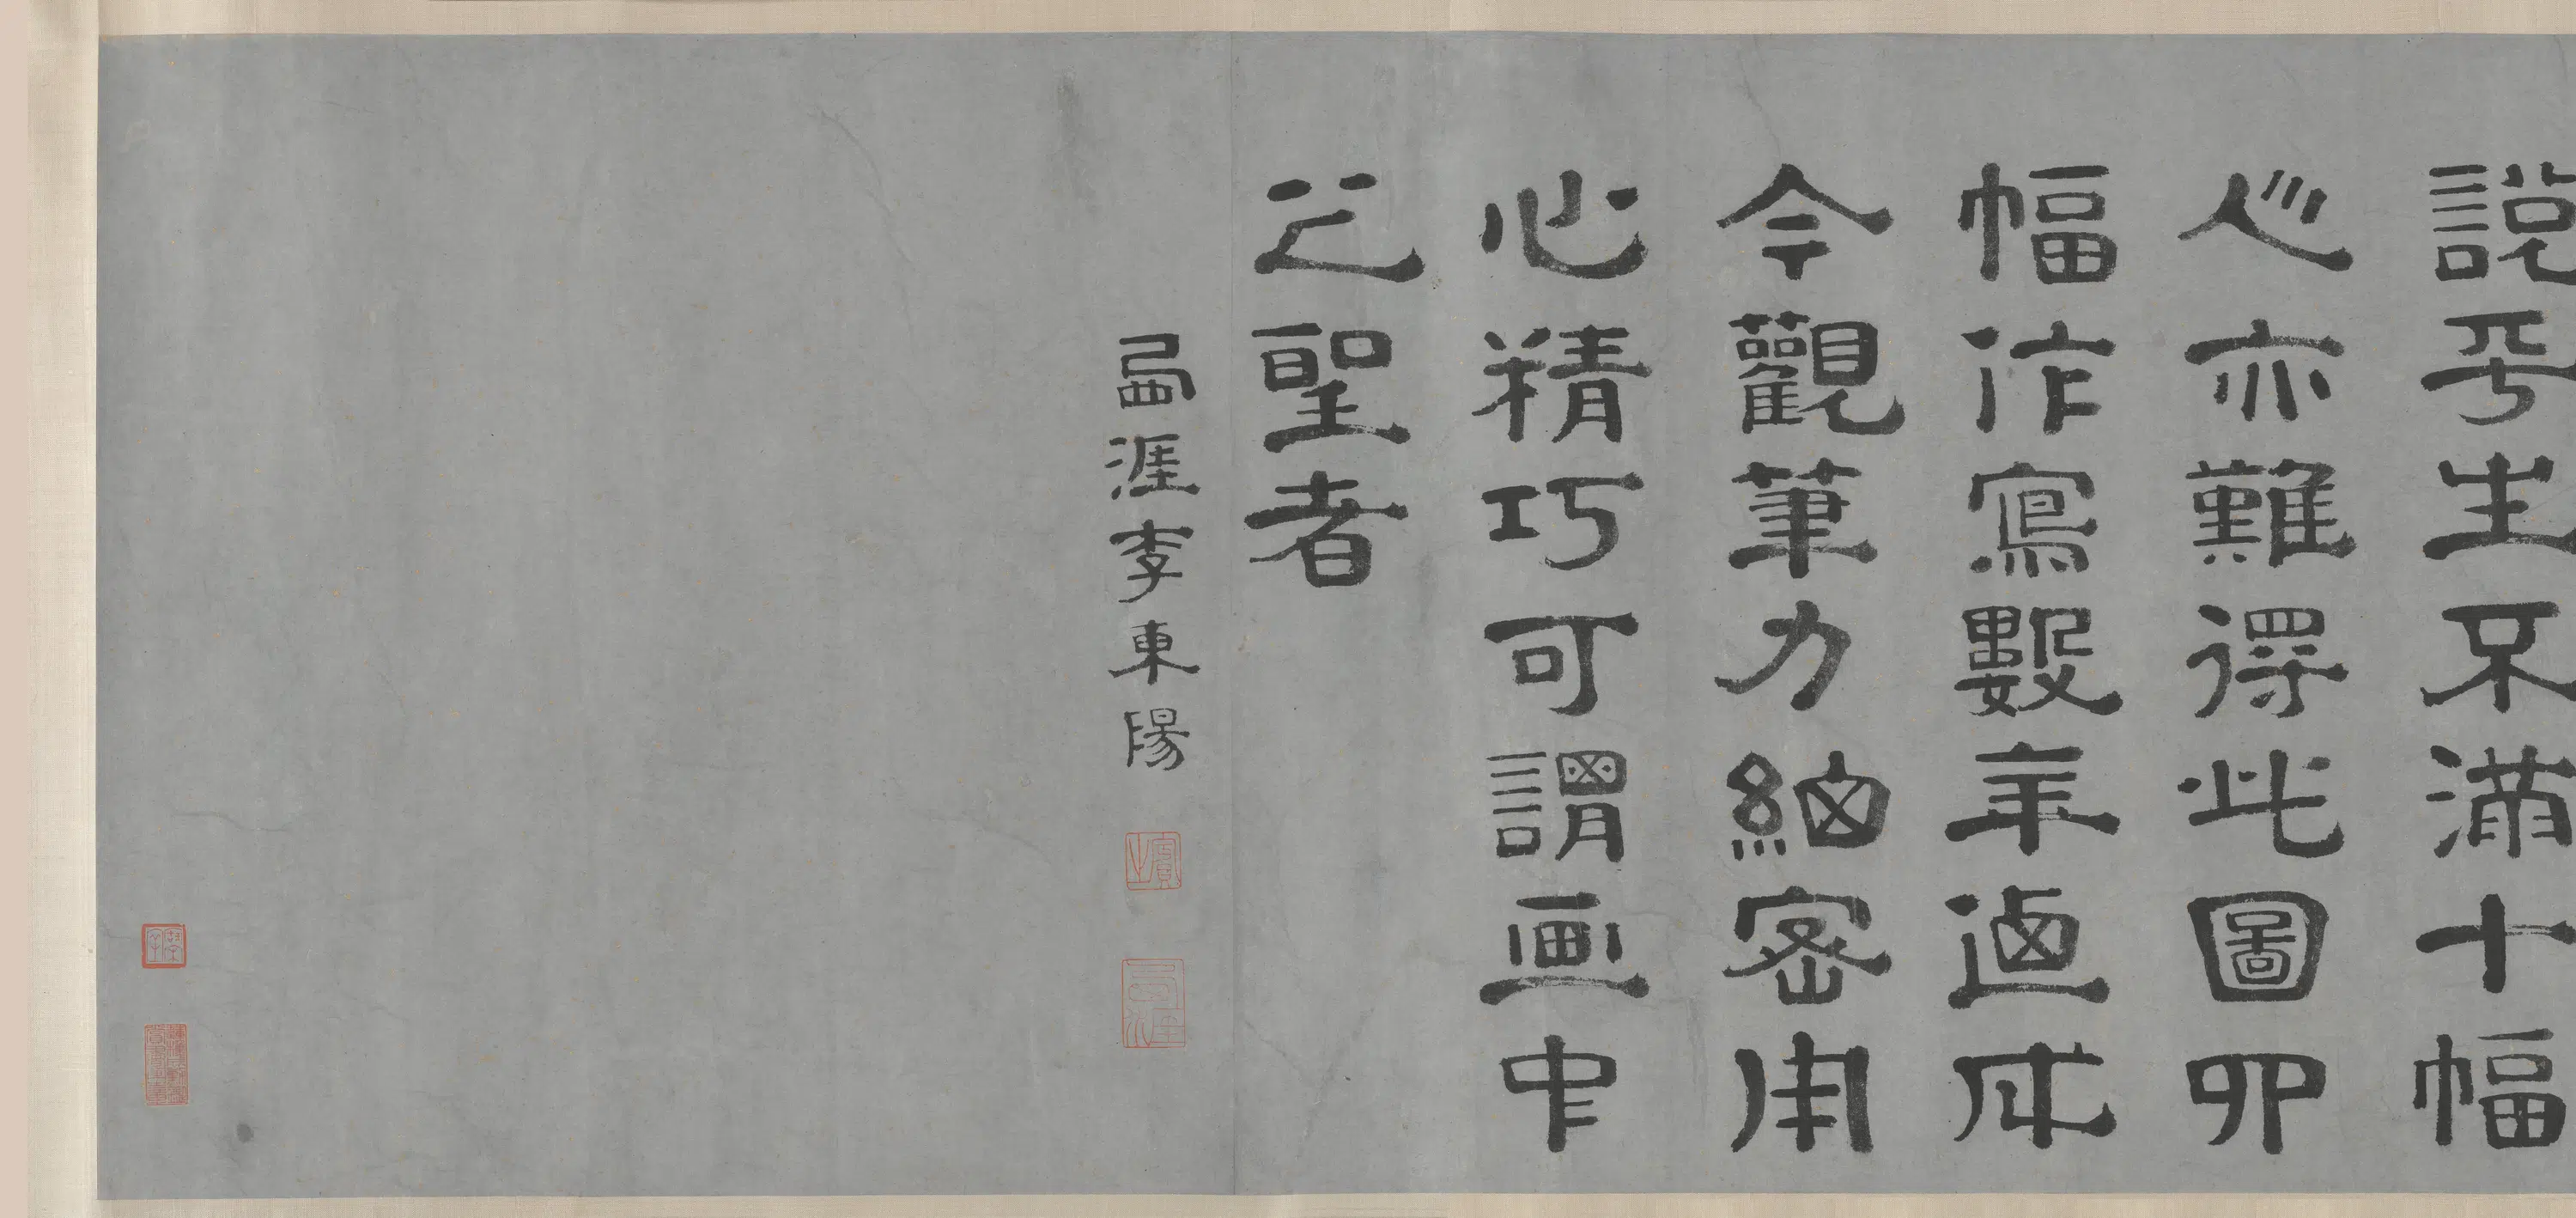 說平生不滿十幅
亦難得此圖卯
幅作寫數年迺成
今觀筆力細密用
心精巧可謂画中
之聖者
西涯李東陽
賓之
西涯